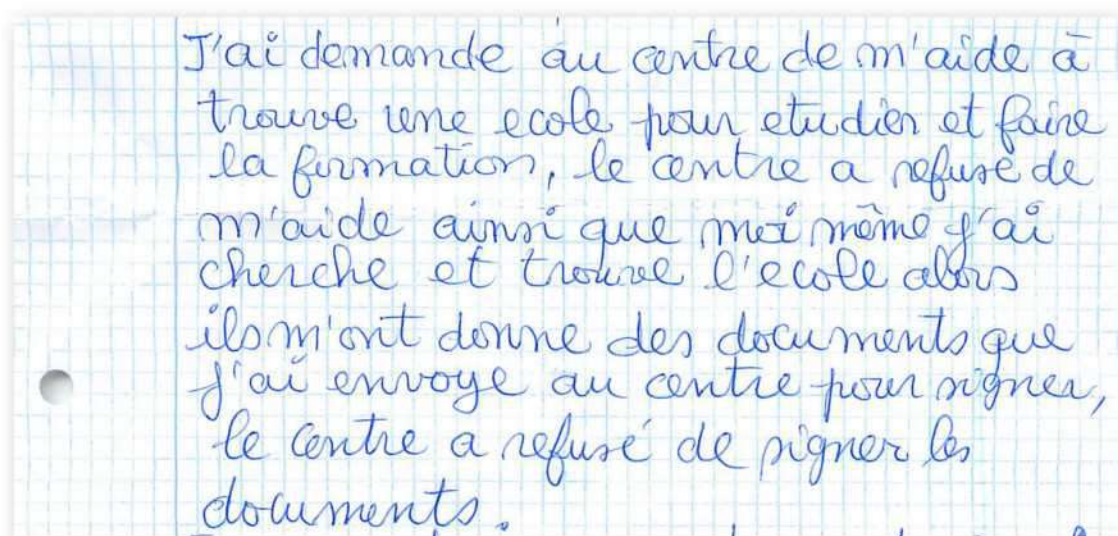 J'ai demande au centre de m'aide à
trouve une ecole pour etudier et faire
la formation, le centre a refusé de
m'aide ainsi que moi même j'ai
cherche et trouve l'ecole alors
ils m'ont donne des documents que
j'ai envoye au centre pour signer,
le centre a refusé de signer les
documents.